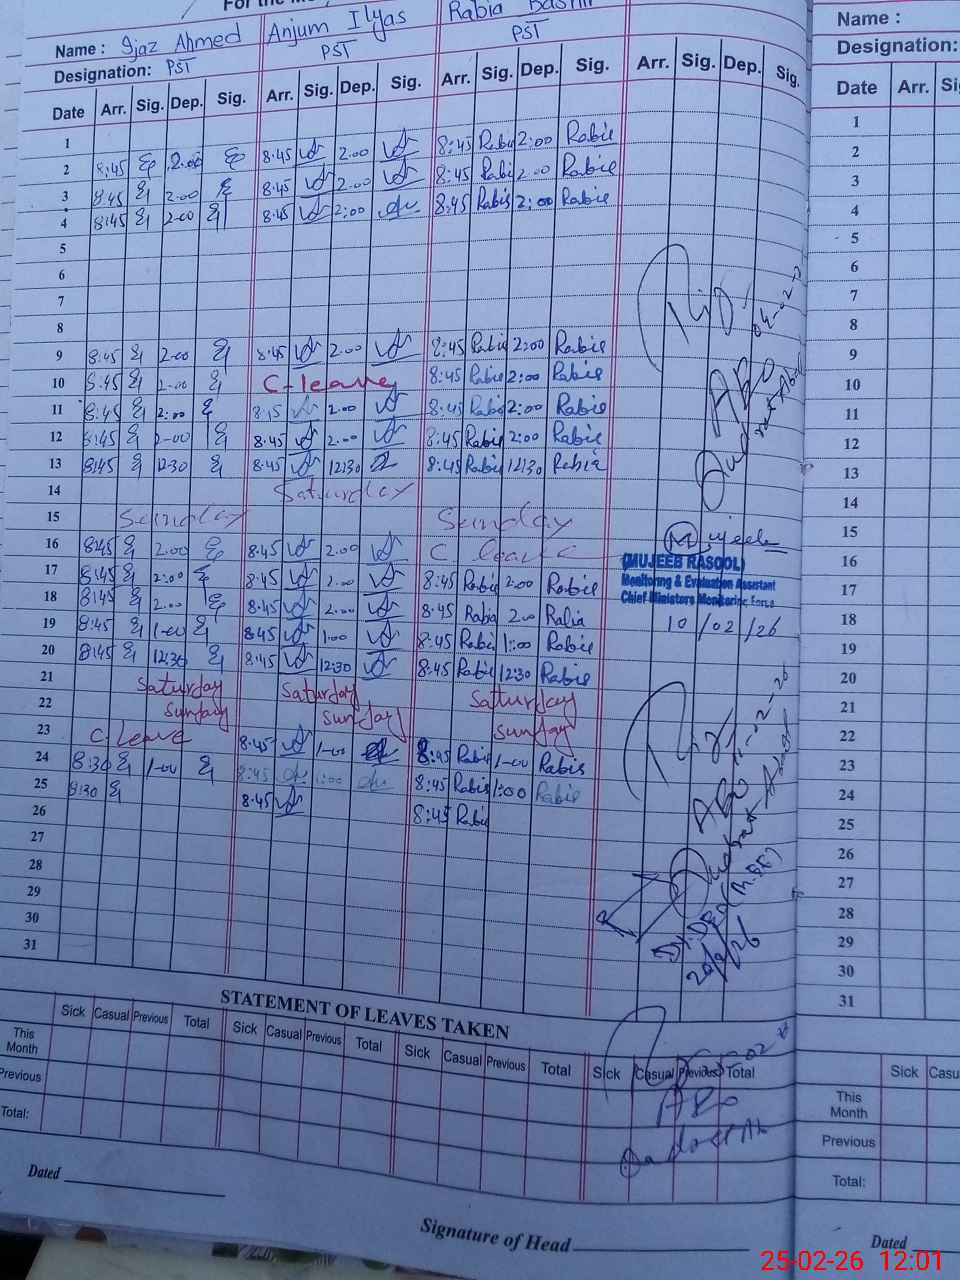 For the Mo
Name : Ijaz Ahmed Anjum Ilyas Rabia Bashir
Designation: PST PST PST
Date Arr. Sig. Dep. Sig. Arr. Sig. Dep. Sig. Arr. Sig. Dep. Sig. Arr. Sig. Dep. Sig.
1
2 8:45 2.00 8.45 2.00 8:45 Rabie 2:00 Rabie
3 8:45 2.00 8.45 2.00 8:45 Rabie 2.00 Rabie
4 8:45 2-00 8.45 2:00 8:45 Rabis 2:00 Rabie
5
6
7
8
9 8:45 2-00 8.45 2.00 8:45 Rabie 2:00 Rabie
10 8:45 2-00 C-leave 8:45 Rabie 2:00 Rabie
11 8:45 2:00 8:45 2.00 8:45 Rabie 2:00 Rabie
12 8:45 2-00 8.45 2.00 8:45 Rabie 2:00 Rabie
13 8:45 12:30 8.45 12:30 8:45 Rabie 12:30 Rabia
14 Saturday
15 Sunday Sunday
16 8:45 2.00 8.45 2.00 C leave
17 8:45 2:00 8.45 2.00 8:45 Rabie 2:00 Rabie
18 8:45 2.00 8.45 2:00 8:45 Rabia 2.00 Rabia
19 8:45 1-00 8:45 1:00 8:45 Rabie 1:00 Rabie
20 8:45 12:30 8:45 12:30 8:45 Rabie 12:30 Rabie
21 Saturday Saturday Saturday
22 Sunday Sunday Sunday
23 C leave 8:45 1-00 8:45 Rabis 1-00 Rabis
24 8:30 1-00 8:45 1:00 8:45 Rabis 1:00 Rabie
25 8:30 8.45 8:45 Rabie
26
27
28
29
30
31
04-02-2
AEO
Mujeeb
(MUJEEB RASOOL)
Monitoring & Evaluation Assistant
Chief Ministers Monitoring Force
10/02/26
AEO
Dy. DEO (M.EE)
20/2/26
AEO
STATEMENT OF LEAVES TAKEN
Sick Casual Previous Total Sick Casual Previous Total Sick Casual Previous Total Sick Casual Previous Total
This Month
Previous
Total:
Dated
Signature of Head
Name :
Designation:
Date Arr. Sig
1
2
3
4
5
6
7
8
9
10
11
12
13
14
15
16
17
18
19
20
21
22
23
24
25
26
27
28
29
30
31
Sick Casu
This Month
Previous
Total:
Dated
25-02-26 12:01